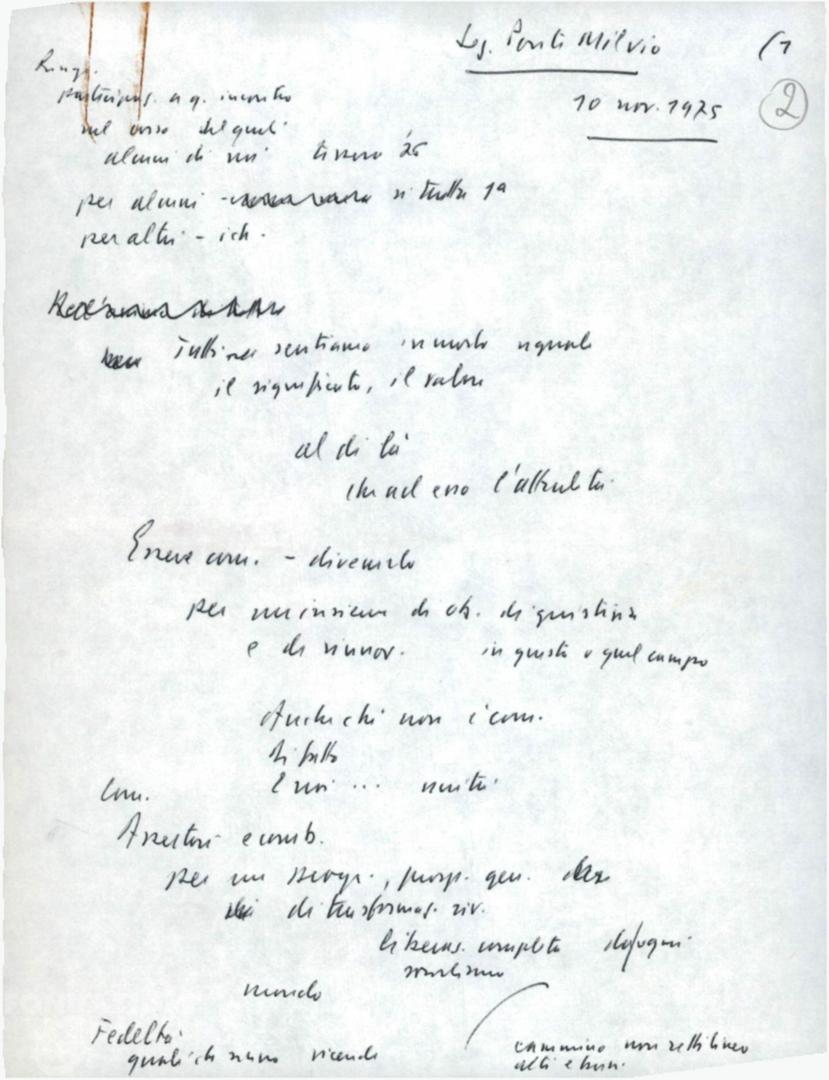 Sez. Ponte Milvio (1
10 nov. 1975 2
Ringr.
partecipaz. a q. incontro
nel corso del quale
alcuni di noi tessera '26
per alcuni - si tratta 1ª
per altri - isch.
Tutti noi sentiamo in modo uguale
il significato, il valore
al di là
che ad esso l'
Essere com. - divenirlo
per un insieme di di giustizia
e di rinnov. in questo o quel campo
Anche chi non è com.
di fatto
E noi ... uniti
Com.
Assertori e comb.
per un progr., prosp. gen.
di trasformaz. riv.
liberaz. completa da ogni
socialismo
mondo
Fedeltà
quali che siano vicende
cammino non rettilineo
alti e bassi